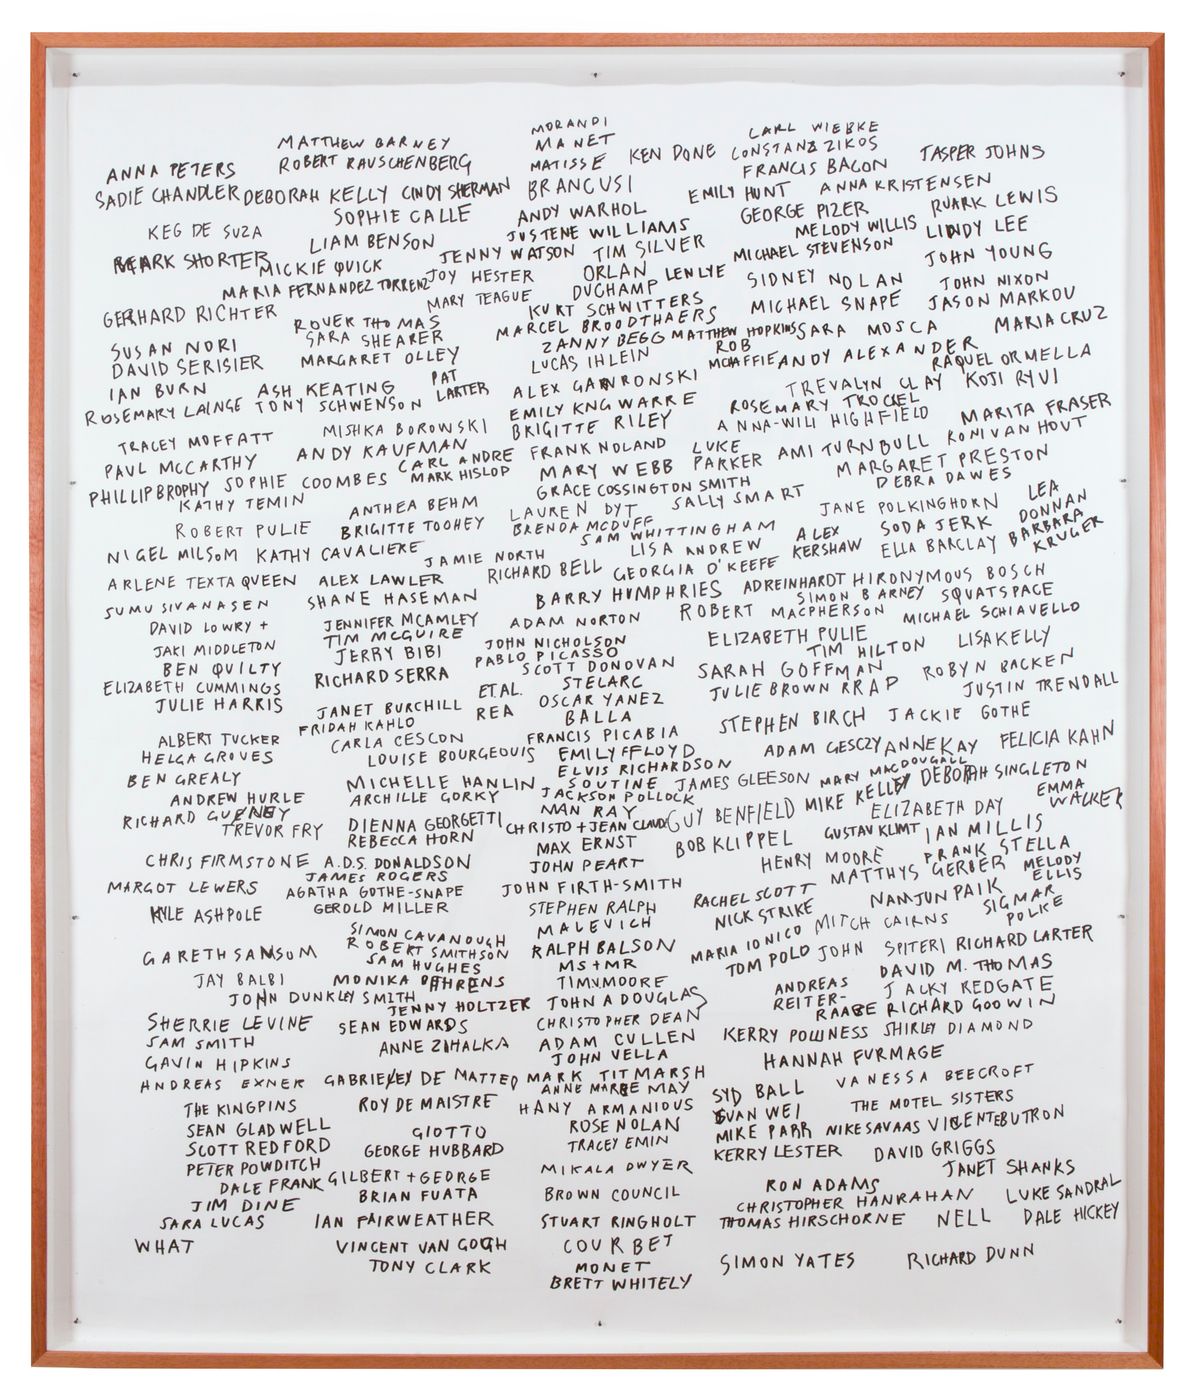 MATTHEW BARNEY
MORANDI
CARL WIEBKE
ANNA PETERS
ROBERT RAUSCHENBERG
MANET
MATISSE
KEN DONE
CONSTANZ ZIKOS
FRANCIS BACON
TASPER JOHNS
SADIE CHANDLER
DEBORAH KELLY
CINDY SHERMAN
BRANCUSI
EMILY HUNT
ANNA KRISTENSEN
SOPHIE CALLE
ANDY WARHOL
GEORGE PIZER
RUARK LEWIS
KEG DE SUZA
LIAM BENSON
JUSTENE WILLIAMS
MELODY WILLIS
LINDY LEE
MARK SHORTER
MICKIE QUICK
JENNY WATSON
TIM SILVER
MICHAEL STEVENSON
JOHN YOUNG
MARIA FERNANDEZ TORRENZ
JOY HESTER
ORLAN
LEN LYE
SIDNEY NOLAN
JOHN NIXON
MARY TEAGUE
DUCHAMP
GERHARD RICHTER
KURT SCHWITTERS
MICHAEL SNAPE
JASON MARKOU
ROVER THOMAS
MARCEL BROODTHAERS
SUSAN NORI
SARA SHEARER
ZANNY BEGG
MATTHEW HOPKINS
SARA MOSCA
MARIA CRUZ
DAVID SERISIER
MARGARET OLLEY
LUCAS IHLEIN
ROB
MCHAFFIE
ANDY ALEXANDER
RAQUEL ORMELLA
IAN BURN
ASH KEATING
PAT
LARTER
ALEX GAWRONSKI
TREVALYN CLAY
KOJI RYUI
ROSEMARY LAINGE
TONY SCHWENSON
EMILY KNGWARRE
ROSEMARY TROCKEL
MISHKA BOROWSKI
BRIGITTE RILEY
ANNA-WILI HIGHFIELD
MARITA FRASER
TRACEY MOFFATT
ANDY KAUFMAN
FRANK NOLAND
LUKE
PARKER
AMI TURNBULL
RONI VAN HOUT
PAUL MCCARTHY
CARL ANDRE
MARY WEBB
MARGARET PRESTON
PHILLIP BROPHY
SOPHIE COOMBES
MARK HISLOP
GRACE COSSINGTON SMITH
DEBRA DAWES
KATHY TEMIN
ANTHEA BEHM
LAUREN DYT
SALLY SMART
JANE POLKINGHORN
LEA
DONNAN
ROBERT PULIE
BRIGITTE TOOHEY
BRENDA MCDUFF
SAM WHITTINGHAM
ALEX
KERSHAW
SODA JERK
BARBARA
KRUGER
NIGEL MILSOM
KATHY CAVALIERE
JAMIE NORTH
LISA ANDREW
ELLA BARCLAY
ARLENE TEXTA QUEEN
ALEX LAWLER
RICHARD BELL
GEORGIA O'KEEFE
AD REINHARDT
HIRONYMOUS BOSCH
SUMU SIVANASEN
SHANE HASEMAN
BARRY HUMPHRIES
SIMON BARNEY
SQUATSPACE
DAVID LOWRY +
JAKI MIDDLETON
JENNIFER MCAMLEY
ADAM NORTON
ROBERT MACPHERSON
MICHAEL SCHIAVELLO
TIM MCGUIRE
JOHN NICHOLSON
ELIZABETH PULIE
BEN QUILTY
JERRY BIBI
PABLO PICASSO
TIM HILTON
LISA KELLY
ELIZABETH CUMMINGS
RICHARD SERRA
SCOTT DONOVAN
SARAH GOFFMAN
ROBYN BACKEN
JULIE HARRIS
ET.AL.
STELARC
JULIE BROWN RRAP
JUSTIN TRENDALL
JANET BURCHILL
REA
OSCAR YANEZ
FRIDAH KAHLO
BALLA
STEPHEN BIRCH
JACKIE GOTHE
ALBERT TUCKER
CARLA CESCON
FRANCIS PICABIA
HELGA GROVES
LOUISE BOURGEOUIS
EMILY FFLOYD
ADAM GESCZY
ANNE KAY
FELICIA KAHN
BEN GREALY
ELVIS RICHARDSON
MARY MACDOUGALL
MICHELLE HANLIN
SOUTINE
JAMES GLEESON
DEBORAH SINGLETON
ANDREW HURLE
ARCHILLE GORKY
JACKSON POLLOCK
MIKE KELLEY
EMMA
WALKER
RICHARD GURNEY
MAN RAY
GUY BENFIELD
ELIZABETH DAY
TREVOR FRY
DIENNA GEORGETTI
CHRISTO + JEAN CLAUDE
REBECCA HORN
MAX ERNST
BOB KLIPPEL
GUSTAV KLIMT
IAN MILLIS
CHRIS FIRMSTONE
A.D.S. DONALDSON
JOHN PEART
HENRY MOORE
FRANK STELLA
JAMES ROGERS
MATTHYS GERBER
MELODY
ELLIS
MARGOT LEWERS
AGATHA GOTHE-SNAPE
JOHN FIRTH-SMITH
RACHEL SCOTT
NAM JUN PAIK
KYLE ASHPOLE
GEROLD MILLER
STEPHEN RALPH
NICK STRIKE
SIGMAR
POLKE
SIMON CAVANOUGH
MALEVICH
MARIA IONICO
MITCH CAIRNS
GARETH SANSOM
ROBERT SMITHSON
RALPH BALSON
TOM POLO
JOHN SPITERI
RICHARD LARTER
SAM HUGHES
MS + MR
JAY BALBI
MONIKA BEHRENS
TIM V MOORE
ANDREAS
REITER-
RAABE
DAVID M. THOMAS
JOHN DUNKLEY SMITH
JENNY HOLTZER
JOHN A DOUGLAS
JACKY REDGATE
SHERRIE LEVINE
SEAN EDWARDS
CHRISTOPHER DEAN
RICHARD GOODWIN
SAM SMITH
ANNE ZIHALKA
ADAM CULLEN
KERRY POWNESS
SHIRLEY DIAMOND
GAVIN HIPKINS
JOHN VELLA
HANNAH FURMAGE
ANDREAS EXNER
GABRIELEY DE MATTEO
MARK TITMARSH
SYD BALL
VANESSA BEECROFT
ANNE MAREE MAY
THE KINGPINS
ROY DE MAISTRE
HANY ARMANIOUS
GUAN WEI
THE MOTEL SISTERS
SEAN GLADWELL
GIOTTO
ROSE NOLAN
MIKE PARR
NIKE SAVAAS
VINCENTE BUTRON
SCOTT REDFORD
GEORGE HUBBARD
TRACEY EMIN
KERRY LESTER
DAVID GRIGGS
PETER POWDITCH
MIKALA DWYER
JANET SHANKS
DALE FRANK
GILBERT + GEORGE
RON ADAMS
JIM DINE
BRIAN FUATA
BROWN COUNCIL
CHRISTOPHER HANRAHAN
LUKE SANDRAL
SARA LUCAS
IAN FAIRWEATHER
STUART RINGHOLT
THOMAS HIRSCHORNE
NELL
DALE HICKEY
WHAT
VINCENT VAN GOGH
COURBET
SIMON YATES
RICHARD DUNN
TONY CLARK
MONET
BRETT WHITELY